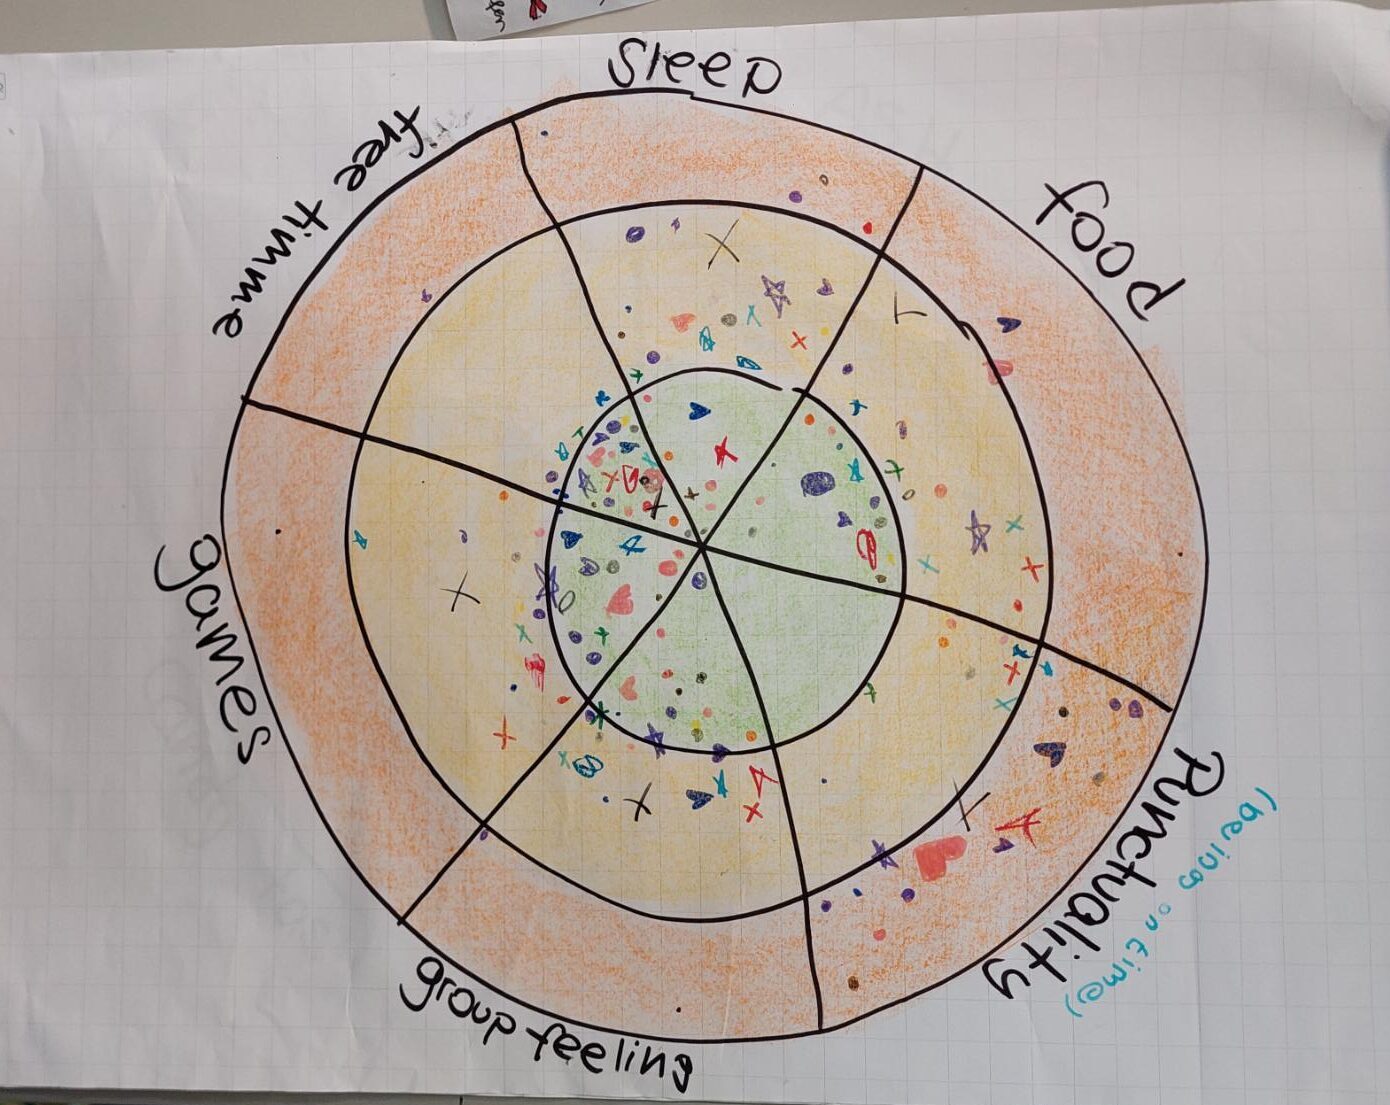 sleep
food
Punctuality
(being on time)
group feeling
games
free time